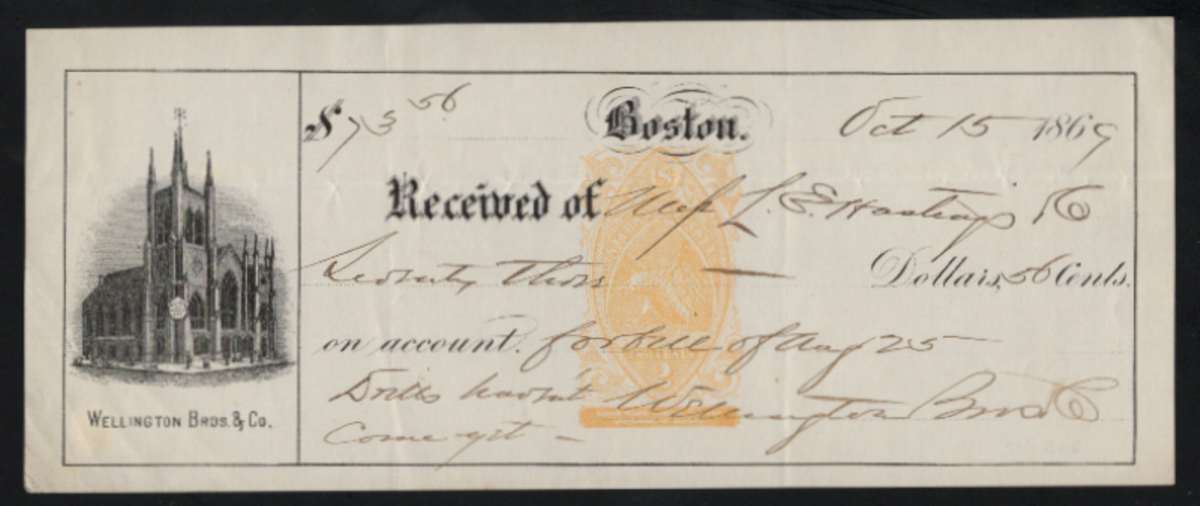 $73 56 Boston. Oct 15 1869
Received of Mess L. E. Hastings & Co
Seventy Three — Dollars, 56 Cents.
on account. for bill of Aug 25
Drills havent Wellington Bros & Co
Come yet –
WELLINGTON BROS. & CO.